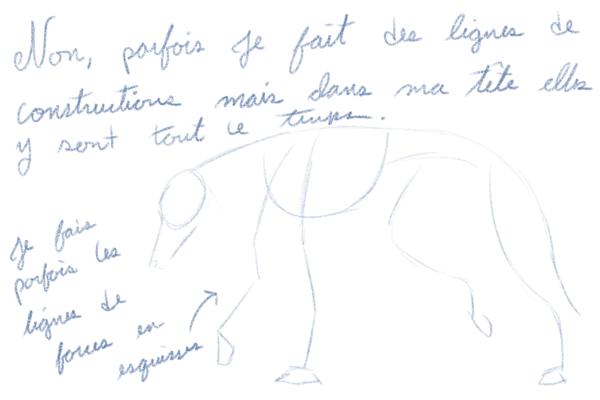 Non, parfois je fait des lignes de
constructions mais dans ma tête elles
y sont tout le temps.
Je fais
parfois les
lignes de
forces en
esquisses